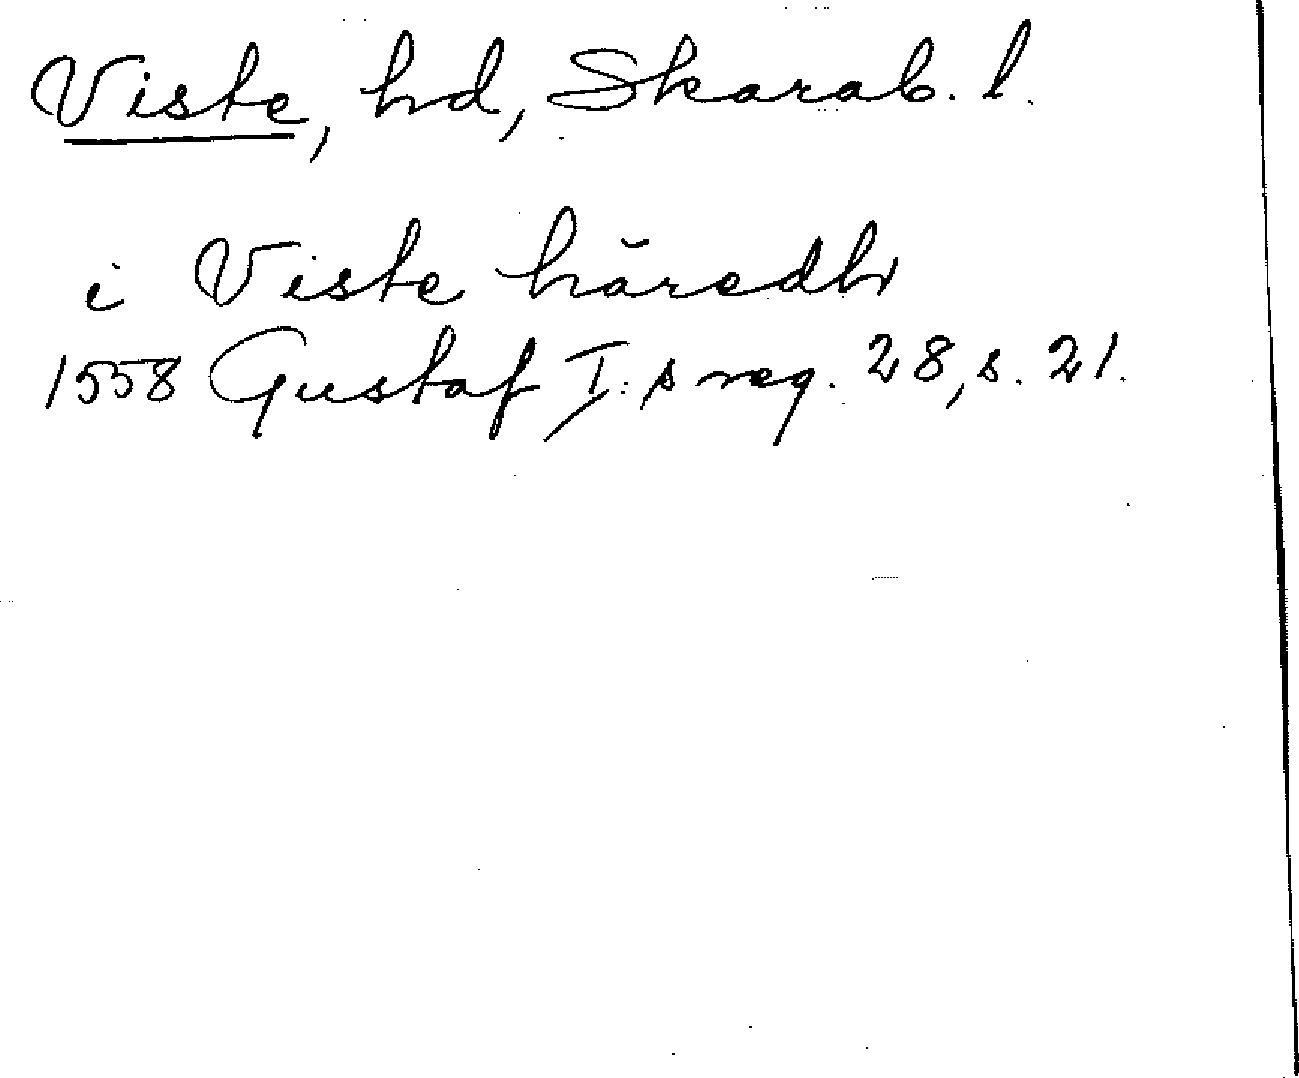 Viste, hd, Skarab. l.
i Viste häredh
1558 Gustaf I:s reg. 28, s. 21.